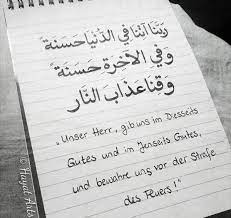 رَبَّنَا آتِنَا فِي الدُّنْيَا حَسَنَةً
وَفِي الْآخِرَةِ حَسَنَةً
وَقِنَا عَذَابَ النَّارِ
„Unser Herr, gib uns im Diesseits
Gutes und im Jenseits Gutes,
und bewahre uns vor der Strafe
des Feuers!"
© Hayat